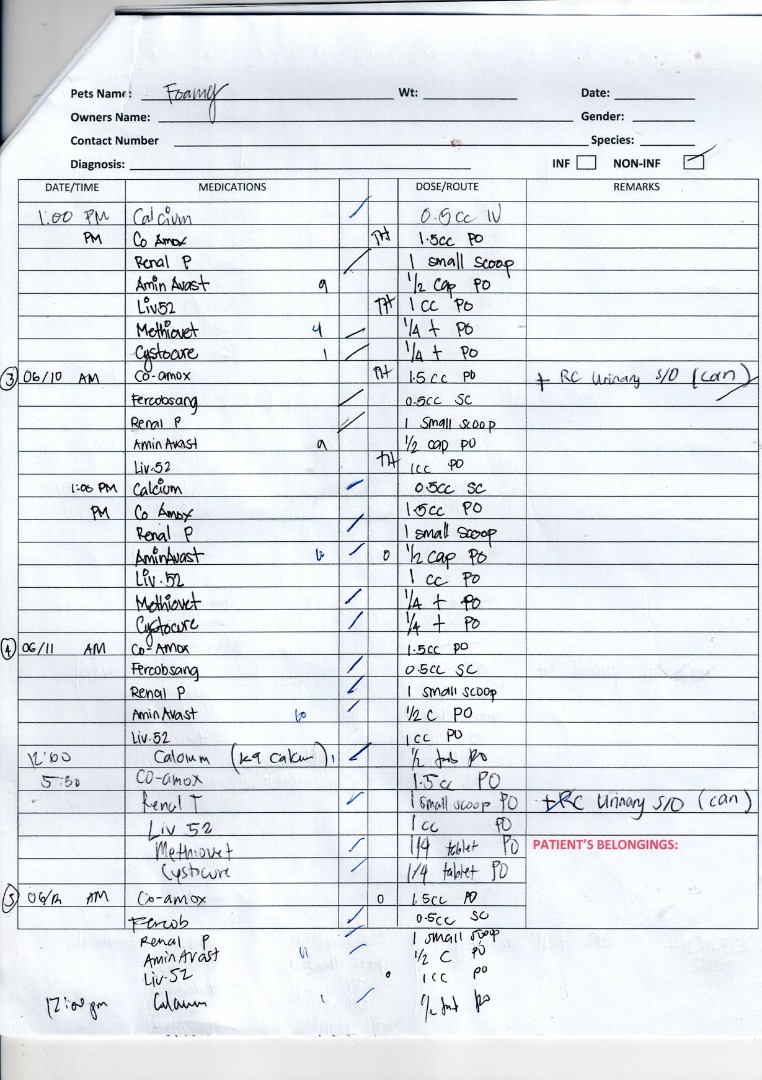 Pets Name: Foamy Wt: Date:
Owners Name: Gender:
Contact Number Species:
Diagnosis: INF NON-INF
DATE/TIME MEDICATIONS DOSE/ROUTE REMARKS
1:00 PM Calcium 0.5cc IV
PM Co Amox TH 1.5cc PO
Renal P 1 small scoop
Amin Avast 9 1/2 cap PO
Liv52 TH 1 cc PO
Methiovet 4 1/4 t PO
Cystocure 1 1/4 t PO
3 06/10 AM Co-amox TH 1.5cc PO + RC Urinary S/O (can)
Fercobsang 0.5cc SC
Renal P 1 small scoop
Amin Avast 9 1/2 cap PO
Liv.52 TH 1cc PO
1:00 PM Calcium 0.5cc SC
PM Co Amox 1.5cc PO
Renal P 1 small scoop
AminAvast 0 1/2 cap PO
Liv.52 1 cc PO
Methiovet 1/4 t PO
Cystocure 1/4 t PO
4 06/11 AM Co-Amox 1.5cc PO
Fercobsang 0.5cc SC
Renal P 1 small scoop
Amin Avast 1/2 C PO
Liv.52 1cc PO
12:00 Calcium 1/2 PO
5:30 CO-amox 1.5cc PO
Renal 1 small scoop PO + RC Urinary S/O (can)
Liv 52 1cc PO
Methiovet 1/4 tablet PO PATIENT'S BELONGINGS:
Cystocure 1/4 tablet PO
5 06/12 AM Co-amox 0 1.5cc PO
Fercob 0.5cc SC
Renal P 1 small scoop
Amin Avast 11 1/2 C PO
Liv-52 1cc PO
12:00 pm Calcium 1/2 PO